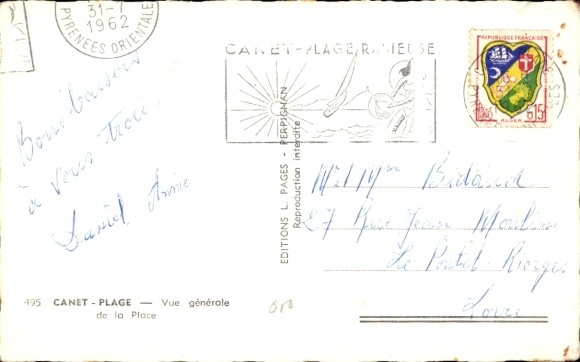 31-7
1962
PYRENEES ORIENTALES
CANET-PLAGE RADIEUSE
REPUBLIQUE FRANÇAISE
0,15
ALGER
Bons baisers
à vous trois
Daniel Annie
EDITIONS L. PAGES - PERPIGNAN
Reproduction interdite
Mr Mme
27 Rue Jean Moulin
Le Riorges
Loire
495 CANET - PLAGE — Vue générale
de la Place